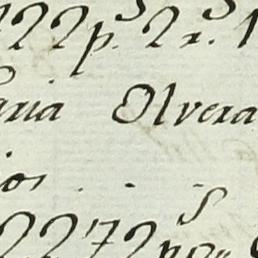 222p.s 2r.s
aria Olvera
ios . . .
2272p.s